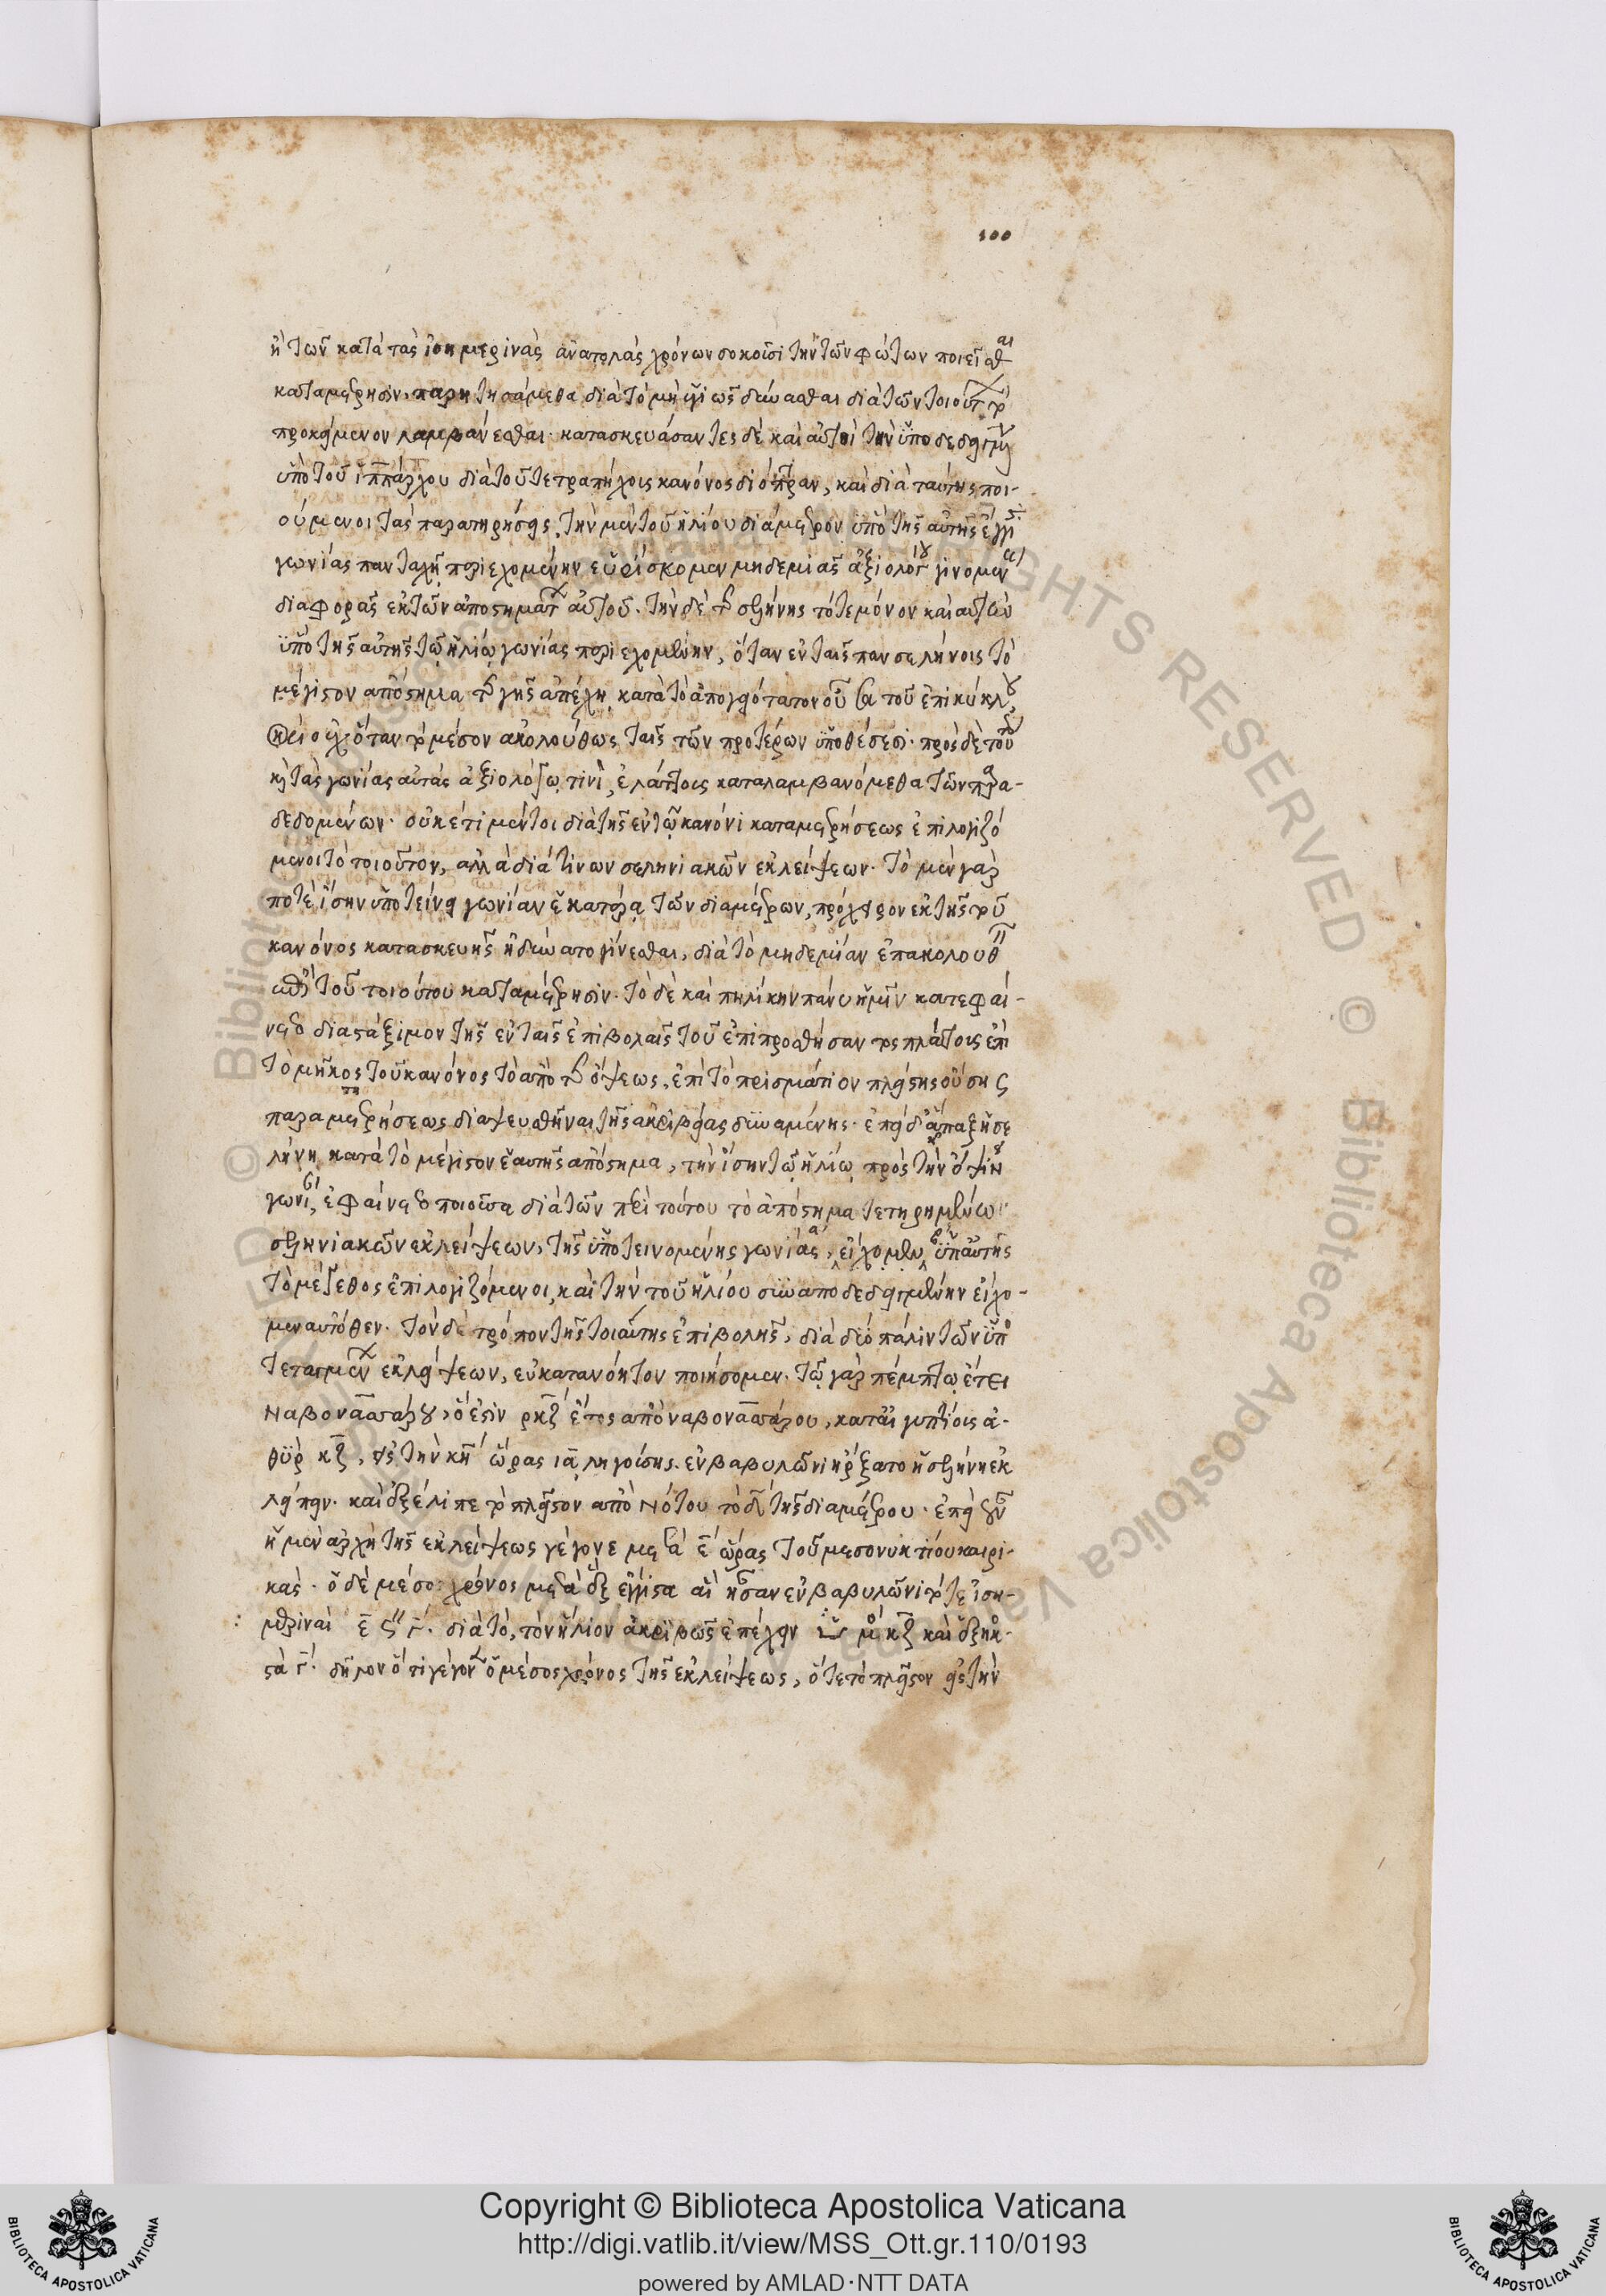 100
ἢ τῶν κατὰ τὰς ἰσημερινὰς ἀνατολὰς χρόνων δοκοῦσι τὴν τῶν φώτων ποιεῖσθαι
καταμέτρησιν, παρῃτησάμεθα διὰ τὸ μὴ ὑγιῶς δύνασθαι διὰ τῶν τοιούτων τὸ
προκείμενον λαμβάνεσθαι· κατασκευάσαντες δὲ καὶ αὐτοὶ τὴν ὑποδεδειγμένην
ὑπὸ τοῦ ἱππάρχου διὰ τοῦ τετραπήχους κανόνος διόπτραν, καὶ διὰ ταύτης ποι-
ούμενοι τὰς παρατηρήσεις, τὴν μὲν τοῦ ἡλίου διάμετρον ὑπὸ τῆς αὐτῆς ἔγγιστα
γωνίας πανταχῇ περιεχομένην εὑρίσκομεν μηδεμιᾶς ἀξιολόγου γινομένης
διαφορᾶς ἐκ τῶν ἀποστημάτων αὐτοῦ. τὴν δὲ τῆς σελήνης τότε μόνον καὶ αὐτὴν
ὑπὸ τῆς αὐτῆς τῷ ἡλίῳ γωνίας περιεχομένην, ὅταν ἐν ταῖς πανσελήνοις τὸ
μέγιστον ἀπόστημα τῆς γῆς ἀπέχῃ κατὰ τὸ ἀπογειότατον οὖσα τοῦ ἐπικύκλου,
ὅταν τὸ μέσον ἀκολούθως ταῖς τῶν προτέρων ὑποθέσεσι· πρὸς δὲ τούτῳ
καὶ τὰς γωνίας αὐτὰς ἀξιολόγῳ τινὶ ἐλάττους καταλαμβανόμεθα τῶν παρα-
δεδομένων· οὐκέτι μέντοι διὰ τῆς ἐν τῷ κανόνι καταμετρήσεως ἐπιλογιζό
μενοι τὸ τοιοῦτον, ἀλλὰ διά τινων σεληνιακῶν ἐκλείψεων. τὸ μὲν γὰρ
πότε ἴσην ὑποτείνει γωνίαν ἑκατέρα τῶν διαμέτρων, πρόχειρον ἐκ τῆς τοῦ
κανόνος κατασκευῆς ἠδύνατο γίνεσθαι, διὰ τὸ μηδεμίαν ἐπακολουθεῖν
τοῦ τοιούτου καταμέτρησιν. τὸ δὲ καὶ πηλίκην πάνυ ἡμῖν κατεφαί-
νετο διστάξιμον τῆς ἐν ταῖς ἐπιβολαῖς τοῦ ἐπιπροσθήσαντος πλάτους ἐπὶ
τὸ μῆκος τοῦ κανόνος τὸ ἀπὸ τῆς ὄψεως, ἐπὶ τὸ πρισμάτιον πλείστης οὔσης
παραμετρήσεως διαψευσθῆναι τῆς ἀκριβείας δυναμένης. ἐπεὶ δ' ἅπαξ ἡ σε
λήνη κατὰ τὸ μέγιστον ἑαυτῆς ἀπόστημα, τὴν ἴσην τῷ ἡλίῳ πρὸς τὴν ὄψιν
γωνίαν ἐφαίνετο ποιοῦσα διὰ τῶν περὶ τοῦτο τὸ ἀπόστημα τετηρημένων
σεληνιακῶν ἐκλείψεων, τῆς ὑποτεινομένης γωνίας, εἴχομεν ὑπ' αὐτῆς
τὸ μέγεθος ἐπιλογιζόμενοι, καὶ τὴν τοῦ ἡλίου συναποδεδειγμένην εἴχο-
μεν αὐτόθεν. τὸν δὲ τρόπον τῆς τοιαύτης ἐπιβολῆς, διὰ δύο πάλιν τῶν ὑπο
τεταγμένων ἐκλείψεων, εὐκατανόητον ποιήσομεν. τῷ γὰρ πέμπτῳ ἔτει
ναβονασσάρου, ὅ ἐστιν ρκζ ἔτος ἀπὸ ναβονασσάρου, κατ' αἰγυπτίους ἀ-
θὺρ κζ, εἰς τὴν κη ὥρας ια ληγούσης ἐν βαβυλῶνι ἤρξατο ἡ σελήνη ἐκ
λείπειν. καὶ ἐξέλιπε τὸ πλεῖστον ἀπὸ νότου τὸ δ τῆς διαμέτρου. ἐπεὶ οὖν
ἡ μὲν ἀρχὴ τῆς ἐκλείψεως γέγονε μετὰ ε ὥρας τοῦ μεσονυκτίου καιρι-
κάς. ὁ δὲ μέσος χρόνος μετὰ Ϛ ἔγγιστα αἳ ἦσαν ἐν βαβυλῶνι τότε ἰση-
μεριναὶ ε Ϛ γ. διὰ τό, τὸν ἥλιον ἀκριβῶς ἐπέχειν μο κζ καὶ ἑξηκ-
στὰ γ. δῆλον ὅτι γέγονεν ὁ μέσος χρόνος τῆς ἐκλείψεως, ὅτε τὸ πλεῖστον εἰς τὴν
Copyright © Biblioteca Apostolica Vaticana
http://digi.vatlib.it/view/MSS_Ott.gr.110/0193
powered by AMLAD·NTT DATA